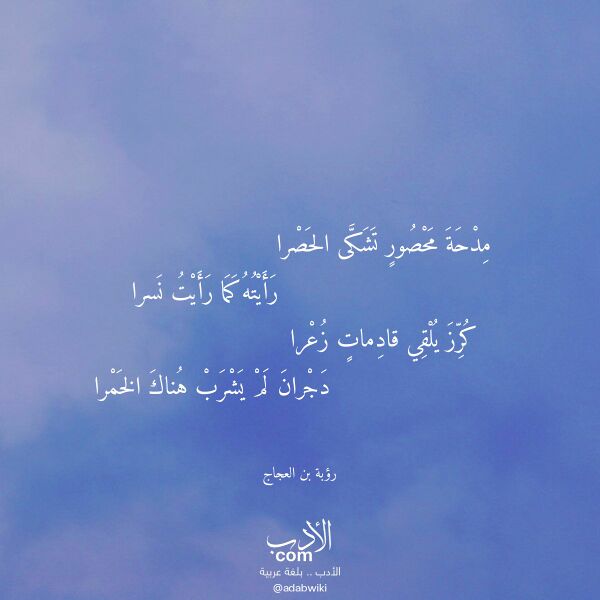 مِدْحَةَ مَحْصُورٍ تَشَكَّى الحَصْرا
رَأَيْتُهُ كَمَا رَأَيْتُ نَسرا
كُرِّزَ يُلْقِي قادِماتٍ زُعْرا
دَجْرانَ لَمْ يَشْرَبْ هُناكَ الخَمْرا
رؤبة بن العجاج
الأدب
com
الأدب .. بلغة عربية
@adabwiki